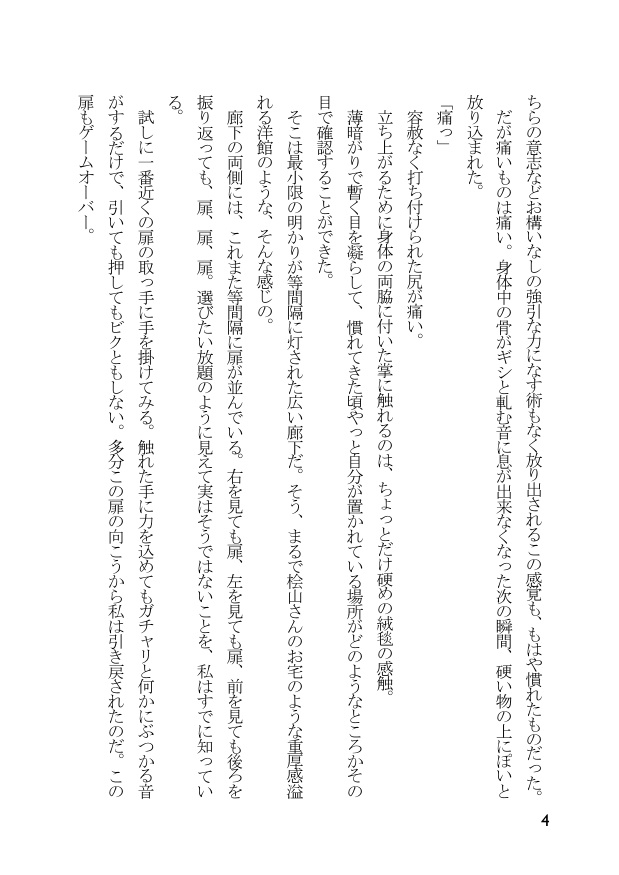 ちらの意志などお構いなしの強引な力になす術もなく放り出されるこの感覚も、もはや慣れたものだった。
　だが痛いものは痛い。身体中の骨がギシと軋む音に息が出来なくなった次の瞬間、硬い物の上にぽいと
放り込まれた。
「痛っ」
　容赦なく打ち付けられた尻が痛い。
　立ち上がるために身体の両脇に付いた掌に触れるのは、ちょっとだけ硬めの絨毯の感触。
　薄暗がりで暫く目を凝らして、慣れてきた頃やっと自分が置かれている場所がどのようなところかその
目で確認することができた。
　そこは最小限の明かりが等間隔に灯された広い廊下だ。そう、まるで桧山さんのお宅のような重厚感溢
れる洋館のような、そんな感じの。
　廊下の両側には、これまた等間隔に扉が並んでいる。右を見ても扉、左を見ても扉、前を見ても後ろを
振り返っても、扉、扉、扉。選びたい放題のように見えて実はそうではないことを、私はすでに知ってい
る。
　試しに一番近くの扉の取っ手に手を掛けてみる。触れた手に力を込めてもガチャリと何かにぶつかる音
がするだけで、引いても押してもビクともしない。多分この扉の向こうから私は引き戻されたのだ。この
扉もゲームオーバー。
4